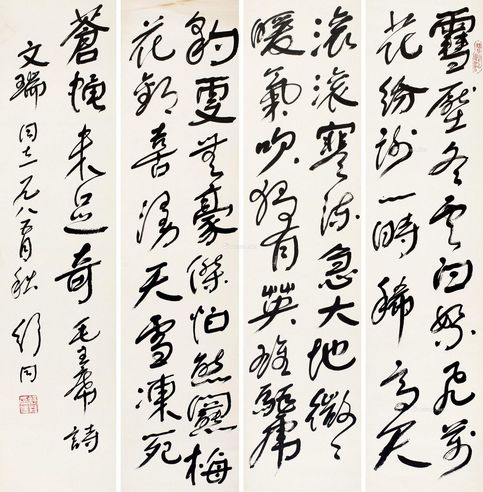 雪壓冬雲白絮飛萬
花紛謝一時稀高天
滚滚寒流急大地微々
暖氣吹獨有英雄驅虎
豹更無豪傑怕熊羆梅
花歡喜漫天雪凍死
蒼蠅未足奇 毛主席詩
文瑞同志一九八秋 舒同